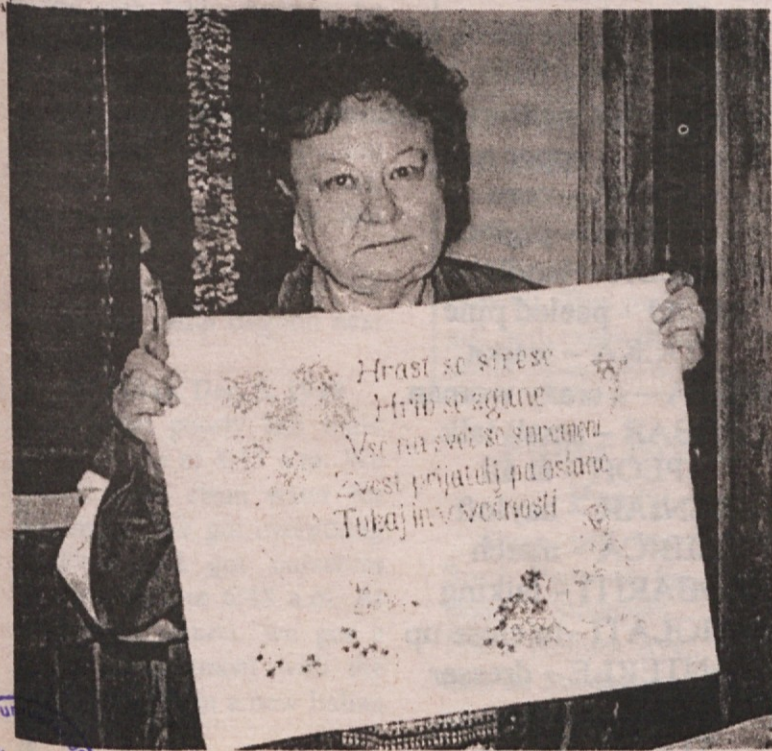 Hrast se strese
Hrib se zgane
Vse na svet se spremeni
Zvest prijatelj pa ostane
Tukaj in v večnosti